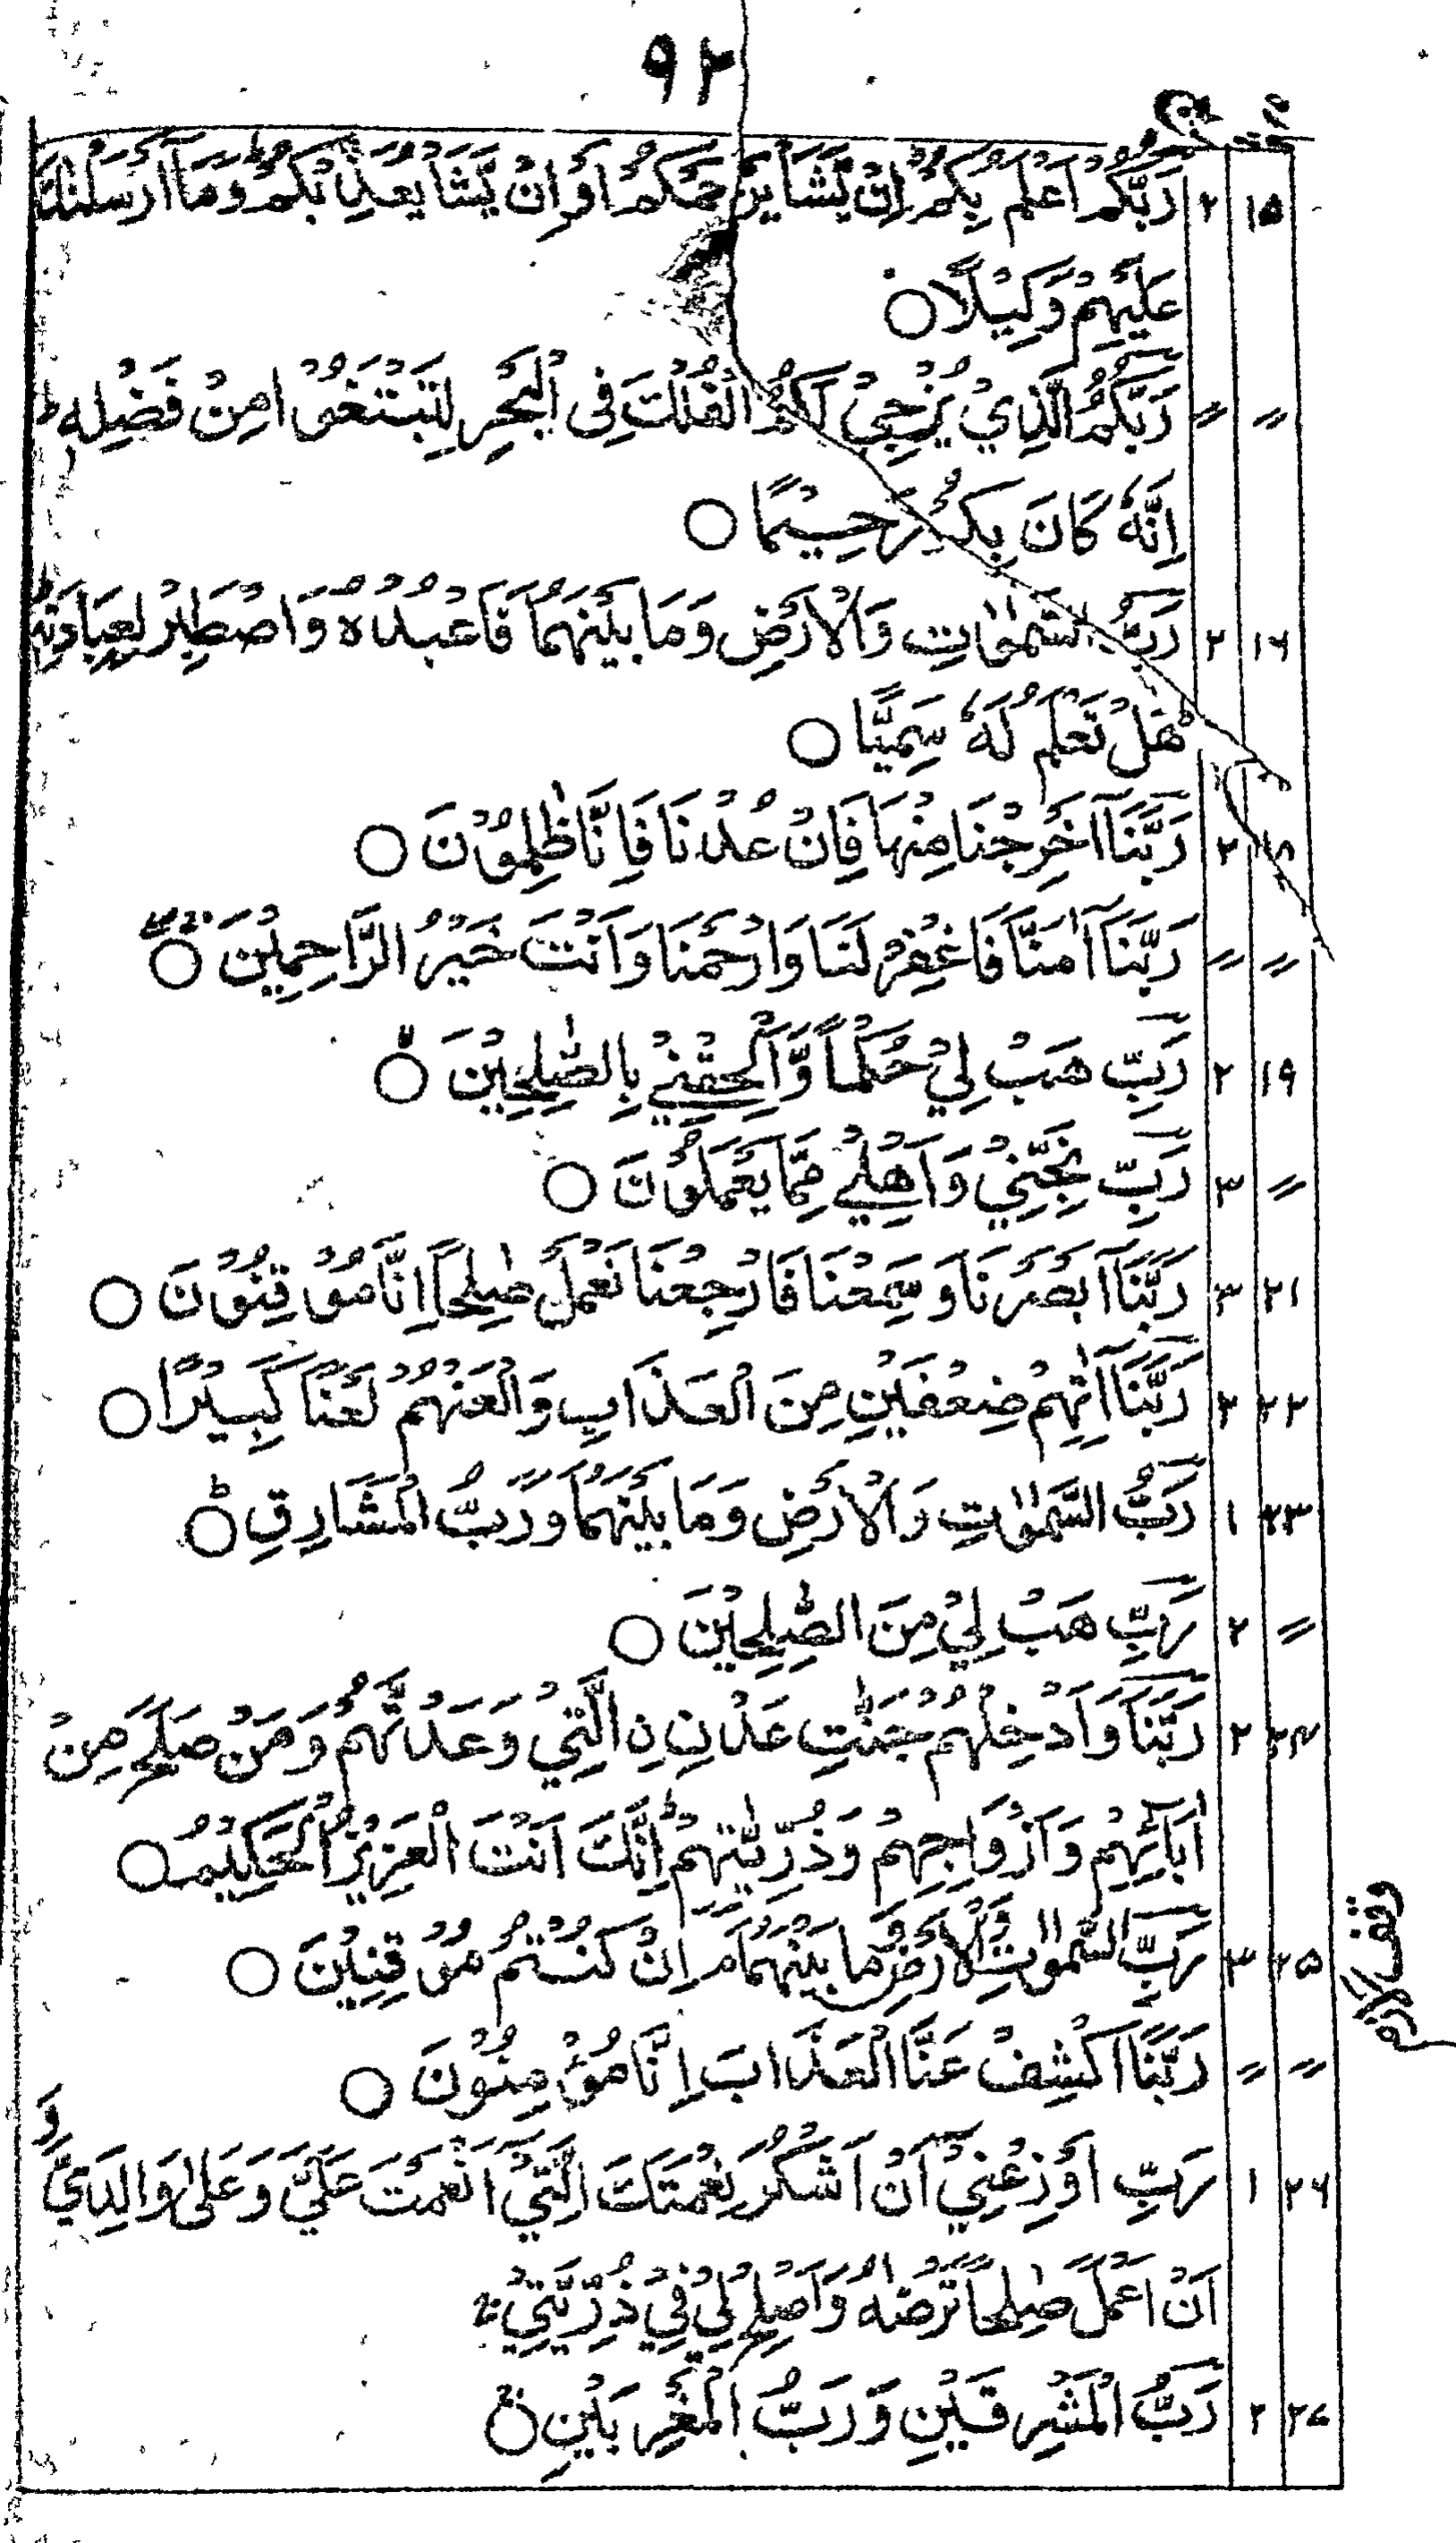 ۹۲
۱۵ ۲ رَبُّكُمْ اَعْلَمُ بِكُمْ اِنْ يَّشَاْ يَرْحَمْكُمْ اَوْ اِنْ يَّشَاْ يُعَذِّبْكُمْ وَمَا اَرْسَلْنٰكَ
عَلَيْهِمْ وَكِيْلًا ○
〃 〃 رَبُّكُمُ الَّذِيْ يُزْجِيْ لَكُمُ الْفُلْكَ فِى الْبَحْرِ لِتَبْتَغُوْا مِنْ فَضْلِهٖ ط
اِنَّهٗ كَانَ بِكُمْ رَحِيْمًا ○
۱۶ ۲ رَبُّ السَّمٰوٰتِ وَالْاَرْضِ وَمَا بَيْنَهُمَا فَاعْبُدْهُ وَاصْطَبِرْ لِعِبَادَتِهٖ ط
هَلْ تَعْلَمُ لَهٗ سَمِيًّا ○
۱۸ ۲ رَبَّنَا اَخْرِجْنَا مِنْهَا فَاِنْ عُدْنَا فَاِنَّا ظٰلِمُوْنَ ○
〃 〃 رَبَّنَا اٰمَنَّا فَاغْفِرْ لَنَا وَارْحَمْنَا وَاَنْتَ خَيْرُ الرَّاحِمِيْنَ ○
۱۹ ۲ رَبِّ هَبْ لِيْ حُكْمًا وَّاَلْحِقْنِيْ بِالصّٰلِحِيْنَ ○
〃 ۳ رَبِّ نَجِّنِيْ وَاَهْلِيْ مِمَّا يَعْمَلُوْنَ ○
۲۱ ۳ رَبَّنَا اَبْصَرْنَا وَسَمِعْنَا فَارْجِعْنَا نَعْمَلْ صٰلِحًا اِنَّا مُوْقِنُوْنَ ○
۲۲ ۳ رَبَّنَا اٰتِهِمْ ضِعْفَيْنِ مِنَ الْعَذَابِ وَالْعَنْهُمْ لَعْنًا كَبِيْرًا ○
۲۳ ۱ رَبُّ السَّمٰوٰتِ وَالْاَرْضِ وَمَا بَيْنَهُمَا وَرَبُّ الْمَشَارِقِ ○ ط
〃 ۲ رَبِّ هَبْ لِيْ مِنَ الصّٰلِحِيْنَ ○
۲۴ ۲ رَبَّنَا وَاَدْخِلْهُمْ جَنّٰتِ عَدْنِ نِ الَّتِيْ وَعَدْتَّهُمْ وَمَنْ صَلَحَ مِنْ
اٰبَآئِهِمْ وَاَزْوَاجِهِمْ وَذُرِّيّٰتِهِمْ ط اِنَّكَ اَنْتَ الْعَزِيْزُ الْحَكِيْمُ ○
۲۵ ۳ رَبِّ السَّمٰوٰتِ وَالْاَرْضِ وَمَا بَيْنَهُمَا م اِنْ كُنْتُمْ مُوْقِنِيْنَ ○
〃 〃 رَبَّنَا اكْشِفْ عَنَّا الْعَذَابَ اِنَّا مُؤْمِنُوْنَ ○
۲۶ ۱ رَبِّ اَوْزِعْنِيْ اَنْ اَشْكُرَ نِعْمَتَكَ الَّتِيْ اَنْعَمْتَ عَلَيَّ وَعَلٰى وَالِدَيَّ وَ
اَنْ اَعْمَلَ صٰلِحًا تَرْضٰهُ وَاَصْلِحْ لِيْ فِيْ ذُرِّيَّتِيْ
۲۷ ۲ رَبُّ الْمَشْرِقَيْنِ وَرَبُّ الْمَغْرِبَيْنِ ○